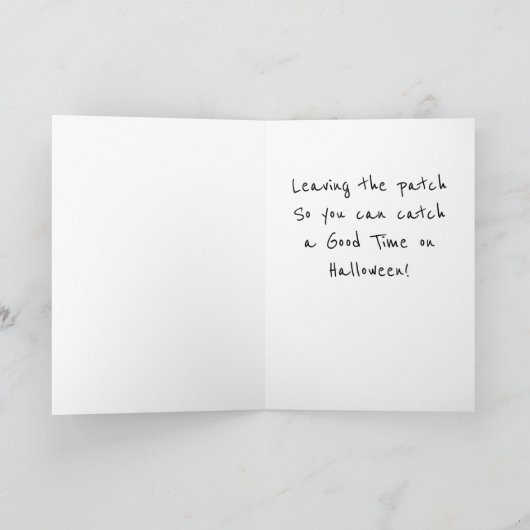 Leaving the patch
So you can catch
a Good Time on
Halloween!